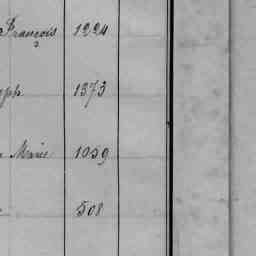 François 1224
pp 1373
Marie 1059
508